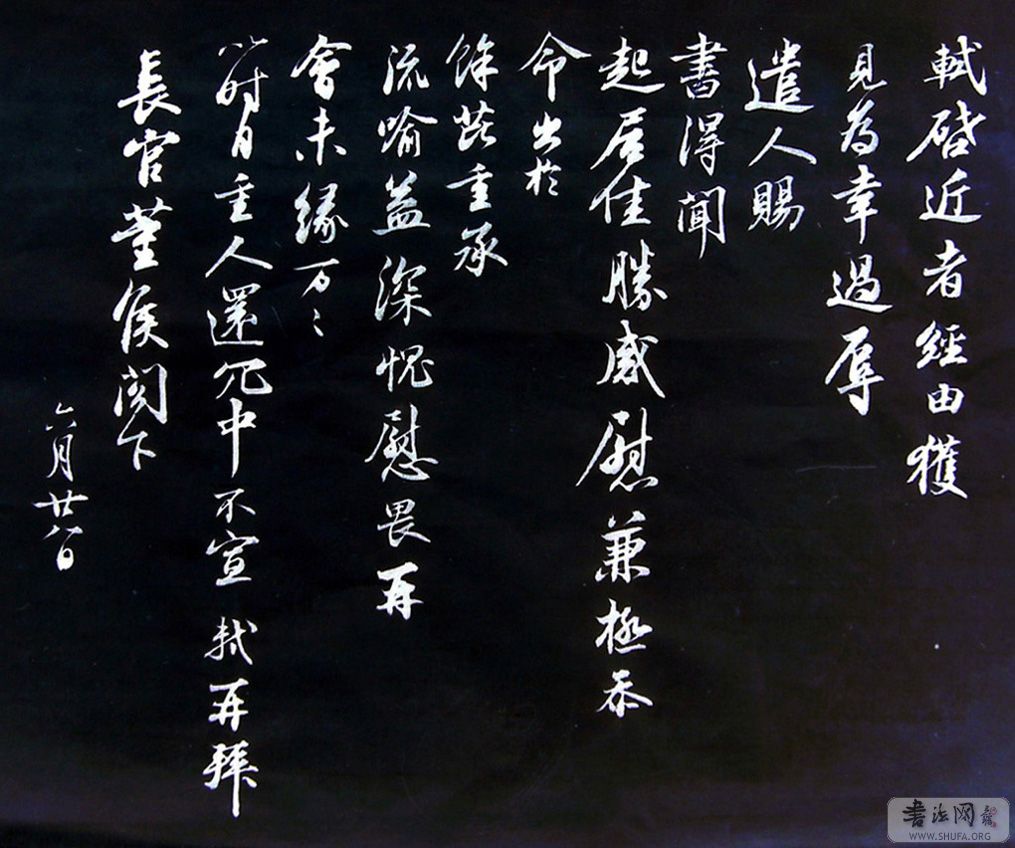 軾啓近者經由獲
見為幸過辱
遣人賜
書得聞
起居佳勝感慰兼極忝
命出於
餘芘重承
流喻益深愧慰畏再
會未緣万〻
以时自重人還冗中不宣 軾再拜
長官董侯閤下
六月廿八日
書法网
WWW.SHUFA.ORG